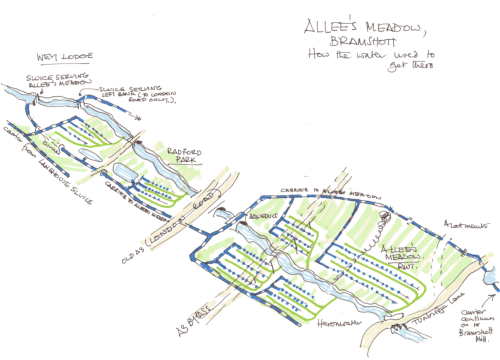 ALLEE'S MEADOW,
BRAMSHOTT
How the water used to
get there
WEY LODGE
SLUICE SERVING
ALLEE'S MEADOW
SLUICE SERVING
LEFT BANK (TO LONDON
ROAD ONLY).
Carrier from
Sluice
RADFORD
PARK
CARRIER TO
OLD A3 (LONDON ROAD)
CARRIER TO ALLEE'S MEADOW
AQUEDUCT
ALLEE'S
MEADOW
Allotments
A3 BYPASS
Tunbridge Lane
Carrier
continues
on to
Bramshott
Mill.